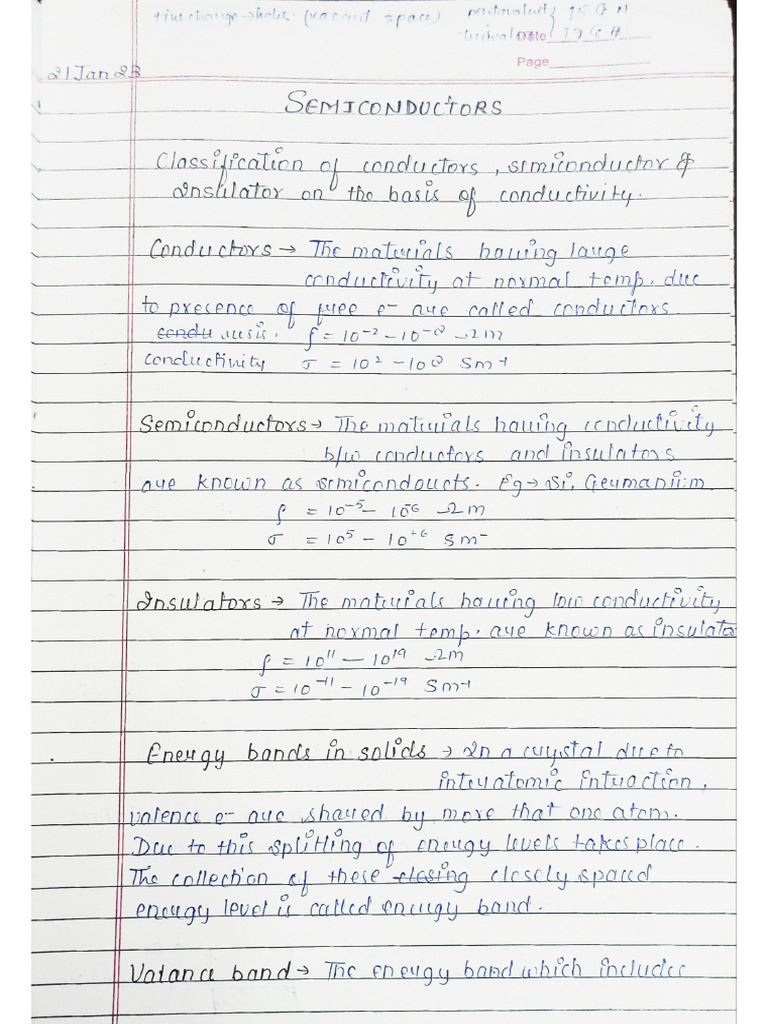 (vacant space)
Date
Page
21 Jan 23
SEMICONDUCTORS
Classification of conductors, semiconductor &
Insulator on the basis of conductivity.
Conductors → The materials having large
conductivity at normal temp. due
to presence of free e- are called conductors
condu resis. ρ = 10⁻² – 10⁻⁸ Ωm
conductivity σ = 10² – 10⁸ Sm⁻¹
Semiconductors → The materials having conductivity
b/w conductors and insulators
are known as semicondoucts. Eg → Si, Germanium
ρ = 10⁻⁵ – 10⁶ Ωm
σ = 10⁵ – 10⁻⁶ Sm⁻
Insulators → The materials having low conductivity
at normal temp. are known as insulator
ρ = 10¹¹ – 10¹⁹ Ωm
σ = 10⁻¹¹ – 10⁻¹⁹ Sm⁻¹
Energy bands in solids → In a crystal due to
interatomic intraction,
valence e- are shared by more that one atom.
Due to this splitting of energy levels takes place.
The collection of these closing closely spaced
energy level is called energy band.
Valance band → The energy band which includes